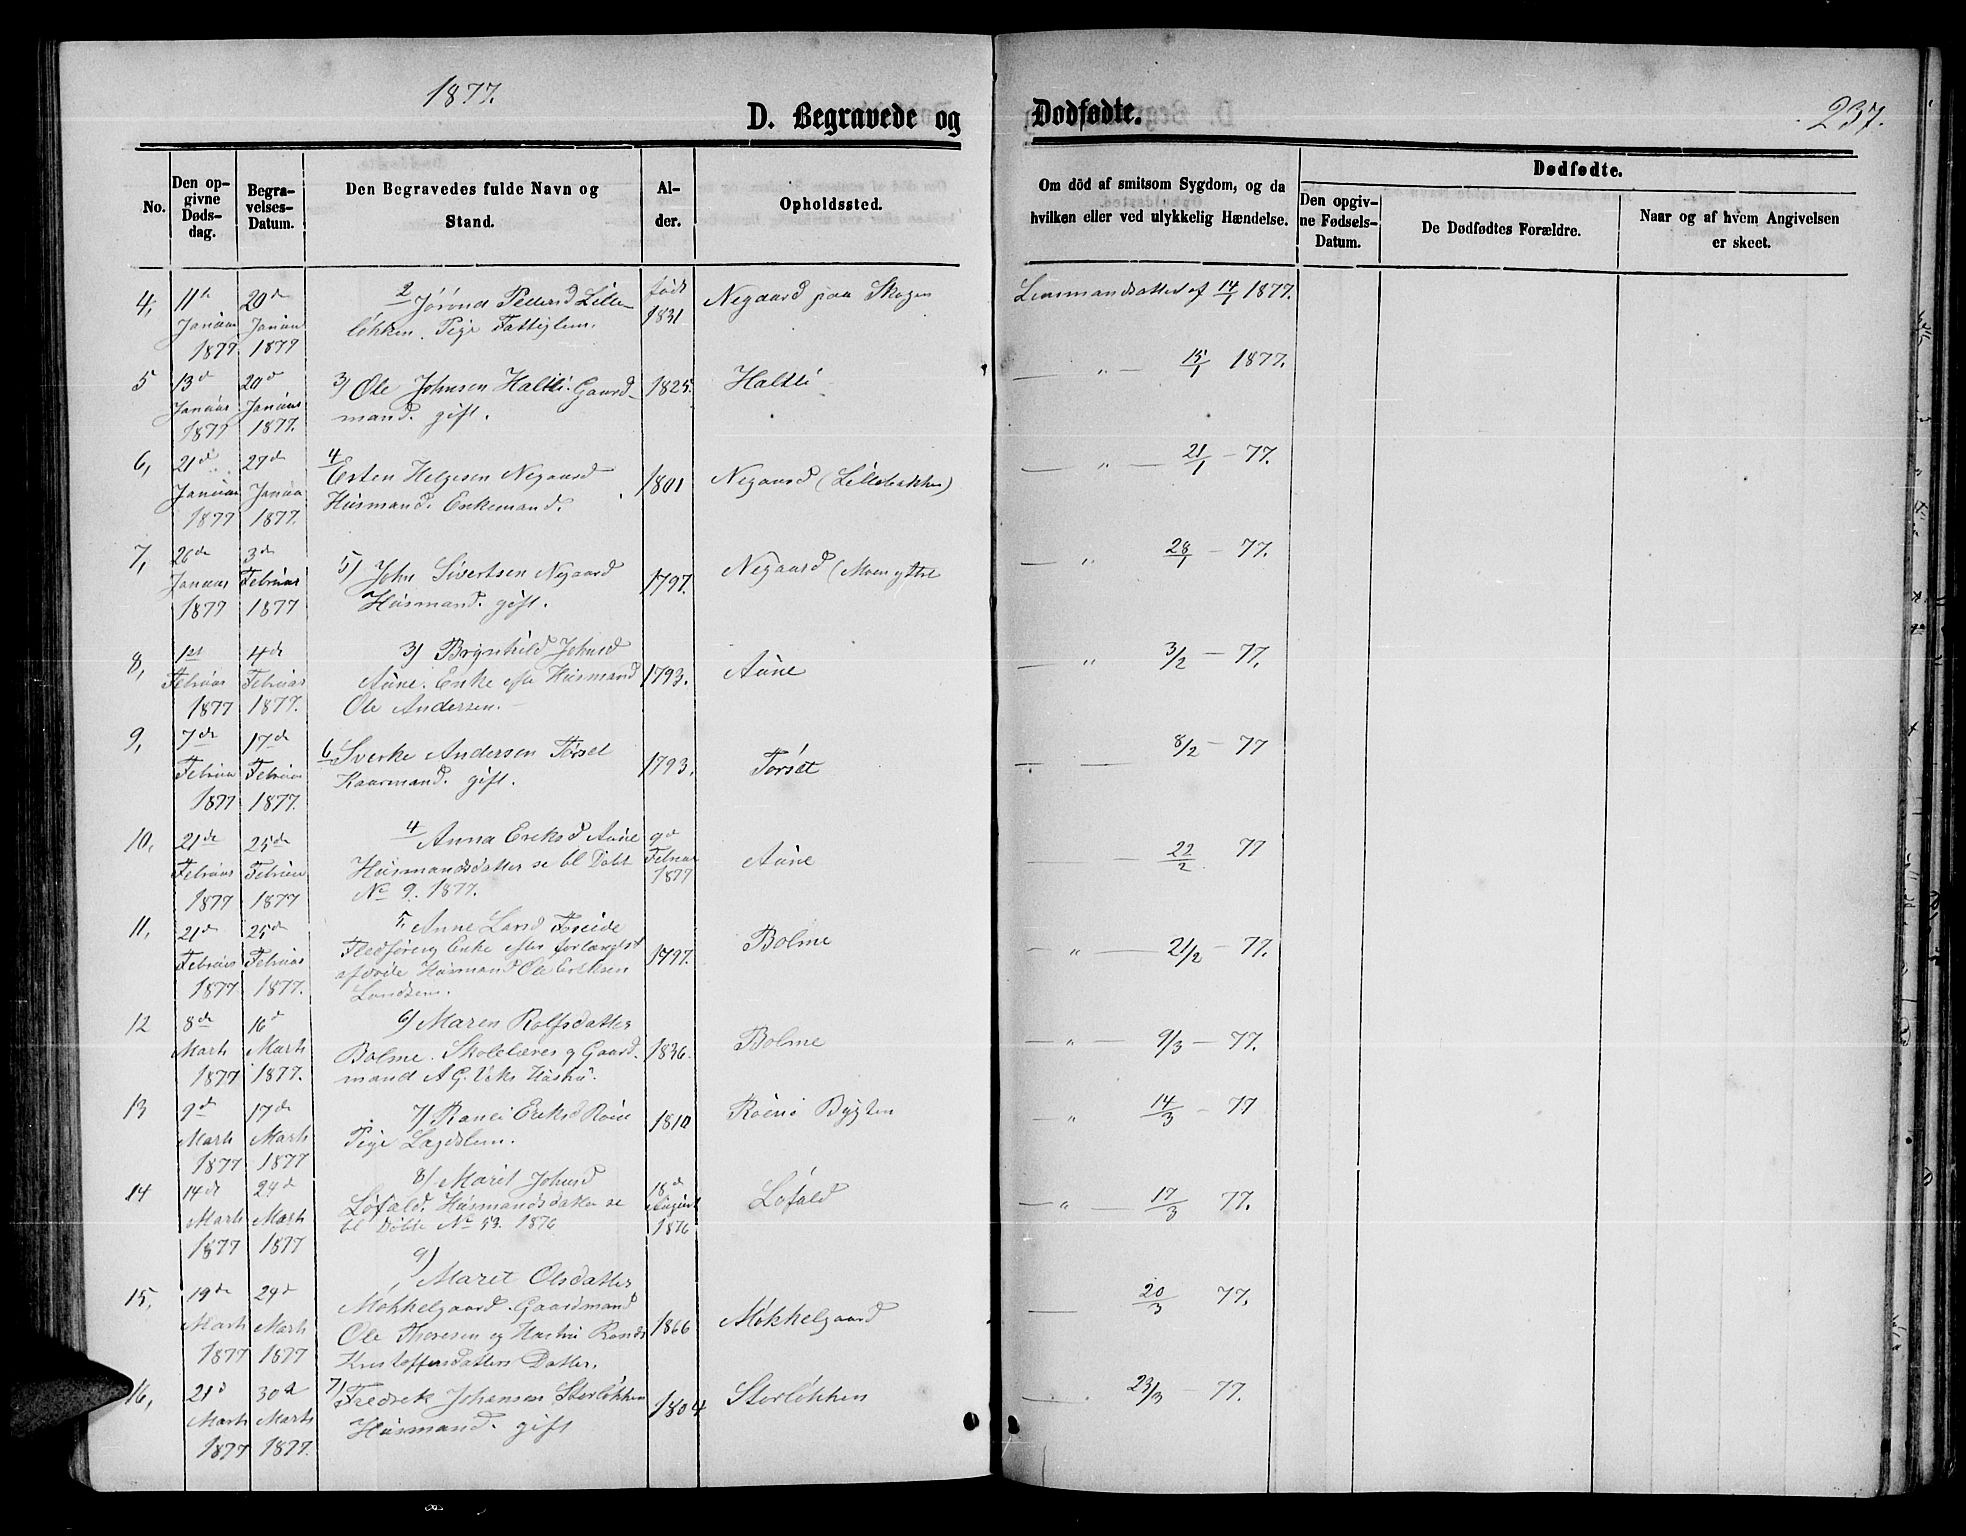 1877.
D. Begravede og Dødfødte.
237.
No.
Den opgivne Dødsdag.
Begravelses-Datum.
Den Begravedes fulde Navn og Stand.
Alder.
Opholdssted.
Om död af smitsom Sygdom, og da hvilken eller ved ulykkelig Hændelse.
Dødfødte.
Den opgivne Fødsels-Datum.
De Dødfødtes Forældre.
Naar og af hvem Angivelsen er skeet.
4, 11te Januar 1877 20de Januar 1877
2 Jørond Pedersd Lilleløkken. Pige Fattiglem.
født 1831 Negaard paa Skogen
Lensmandsattest af 14/1 1877.
5 13de Januar 1877 20de Januar 1877.
3) Ole Johnsen Haltli. Gaardmand. gift.
1825. Haltli
— " — 15/1 1877.
6, 21de Januar 1877 27de Januar 1877.
4 Esten Helgesen Negaard Husmand. Enkemand.
1801 Negaard (Lillebakken)
— " — 21/1 - 77.
7, 26de Januar 1877 3de Februar 1877
5) John Sivertsen Negaard Husmand. gift.
1797. Negaard (Moen ytre
— " 28/1 - 77.
8, 1ste Februar 1877 4de Februar 1877.
3) Brynhild Johnsd Aune. Enke efter Husmand Ole Andersen.
1793. Aune
— " 3/2 - 77.
9, 7de Februar 1877 17de Februar 1877.
6 Sverke Andersen Torset Kaarmand. gift.
1793. Torset
— — 8/2 - 77
10, 21de Februar 1877 25de Februar 1877
4 Anna Eriksd Aune Husmandsdatter se bl Døbt No 9. 1877.
9de Februar 1877 Aune
— 22/2 77
11, 21de Februar 1877 25de Februar 1877.
5, Anne Larsd Foseide Fledføring Enke efter forlængst afdøde Husmand Ole Eriksen
1797. Bolme
— " — 21/2 - 77.
12 8de Marts 1877 16de Marts 1877.
6) Maren Rolfsdatter Bolme. Skolelærer og Gaardmand A G. Hustru.
1836. Bolme
— " — 9/3 - 77.
13 9de Marts 1877 17de Marts 1877
7) Ranei Eriksd Pige Lægdslem.
1810 Bygten
— " 14/3 - 77
14 14de Marts 1877 24de Marts 1877
8) Marit Johnsd Løfald. Husmandsdatter se bl Døbte No 53. 1876
18de August 1876 Løfald
— " — 17/3 77.
15, 19de Marts 1877 24de Marts 1877
9) Marit Olsdatter Mokkelgaard. Gaardmand Ole Thoresen og Hustru Kristoffersdatters Datter.
1866 Mokkelgaard
— 20/3 77.
16, 21de Marts 1877 30de Marts 1877.
7) Fredrik Johansen Storløkken Husmand. gift
1804 Storløkken
— 23/3 - 77.